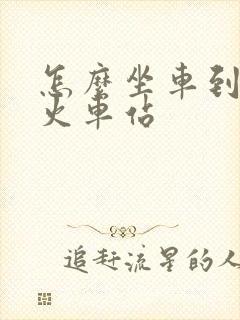 怎麼坐車到
火車佔
追赶流星的人